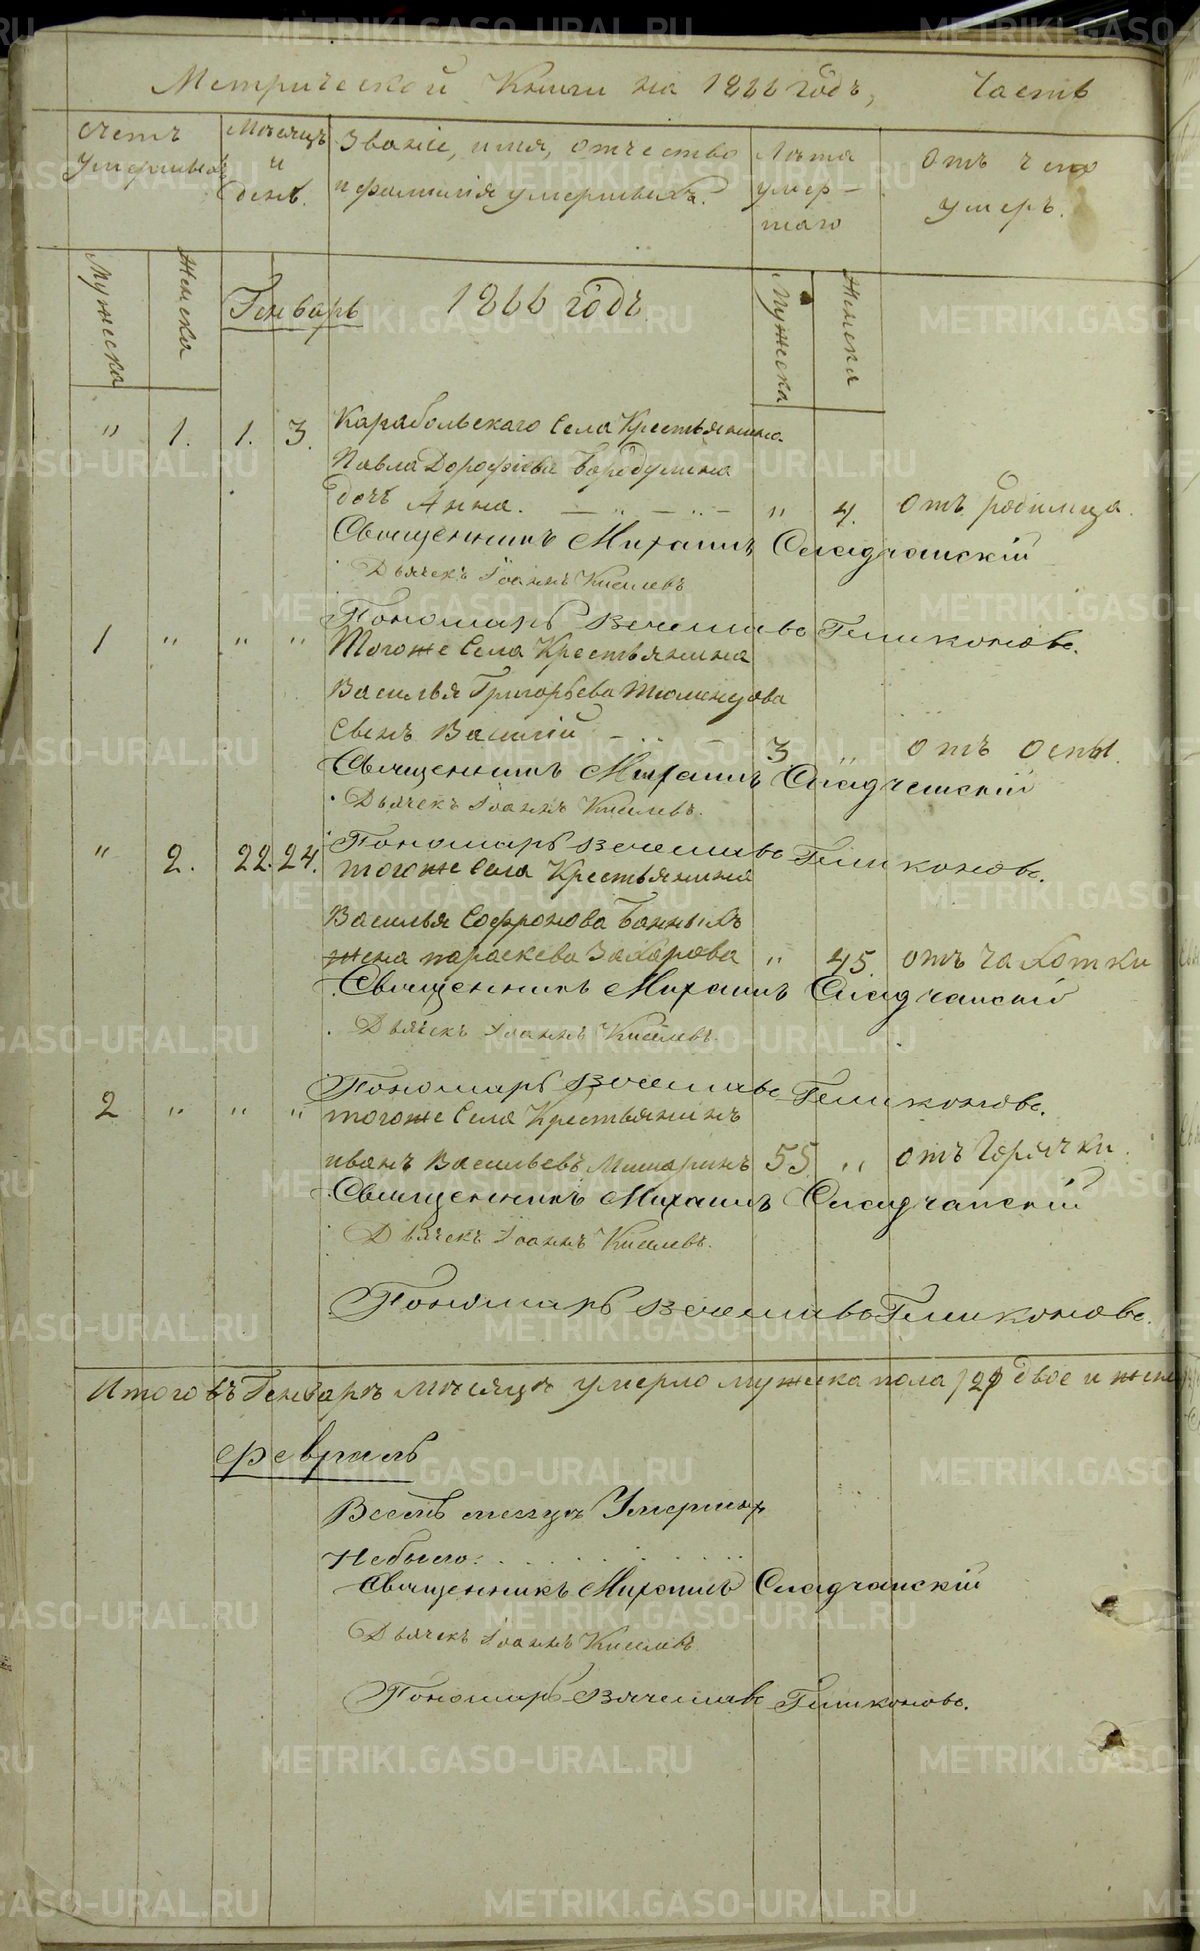 Метрической Книги на 1866 годъ, Часть
Счетъ умершихъ
Месяцъ и день.
Званіе, имя, отчество
и фамилія умершихъ.
Лѣта умер-
шаго
Отъ чего
умеръ.
Мужеска
Женска
Генварь
1866 годъ.
Мужеска
Женска
" 1. 1. 3. Карабольскаго Села Крестьянина
Павла Дорофѣева Бородулина
дочь Анна. — .. — .. — " 4. отъ родимца.
Священникъ Михаилъ Сладчанскій
Дьячекъ Іоаннъ Киселевъ
Пономарь Вечеславъ Геликоновъ.
1 " " " Тогоже Села Крестьянина
Василья Григорьева Тюленцова
Сынъ Василій — .. — 3 " отъ оспы.
Священникъ Михаилъ Сладчанскій
Дьячекъ Іоаннъ Киселевъ.
Пономарь Вечеславъ Геликоновъ.
" 2. 22. 24. тогоже Села Крестьянина
Василья Софронова Банныхъ
жена параскева Захарова " 45. отъ чахотки
Священникъ Михаилъ Сладчанскій
Дьячекъ Іоаннъ Киселевъ.
Пономарь Вечеславъ Геликоновъ.
2 " " " тогоже Села Крестьянинъ
иванъ Васильевъ Мишаринъ 55 " отъ Горячки.
Священникъ Михаилъ Сладчанскій
Дьячекъ Іоаннъ Киселевъ.
Пономарь Вечеславъ Геликоновъ.
Итого въ Генварѣ мѣсяцѣ умерло мужеска пола /2/ двое и
февраль
Весть месецъ Умершихъ
Небыло.
Священникъ Михаилъ Сладчанскій
Дьячекъ Іоаннъ Киселевъ
Пономарь Вячеславъ Геликоновъ.
METRIKI.GASO-URAL.RU